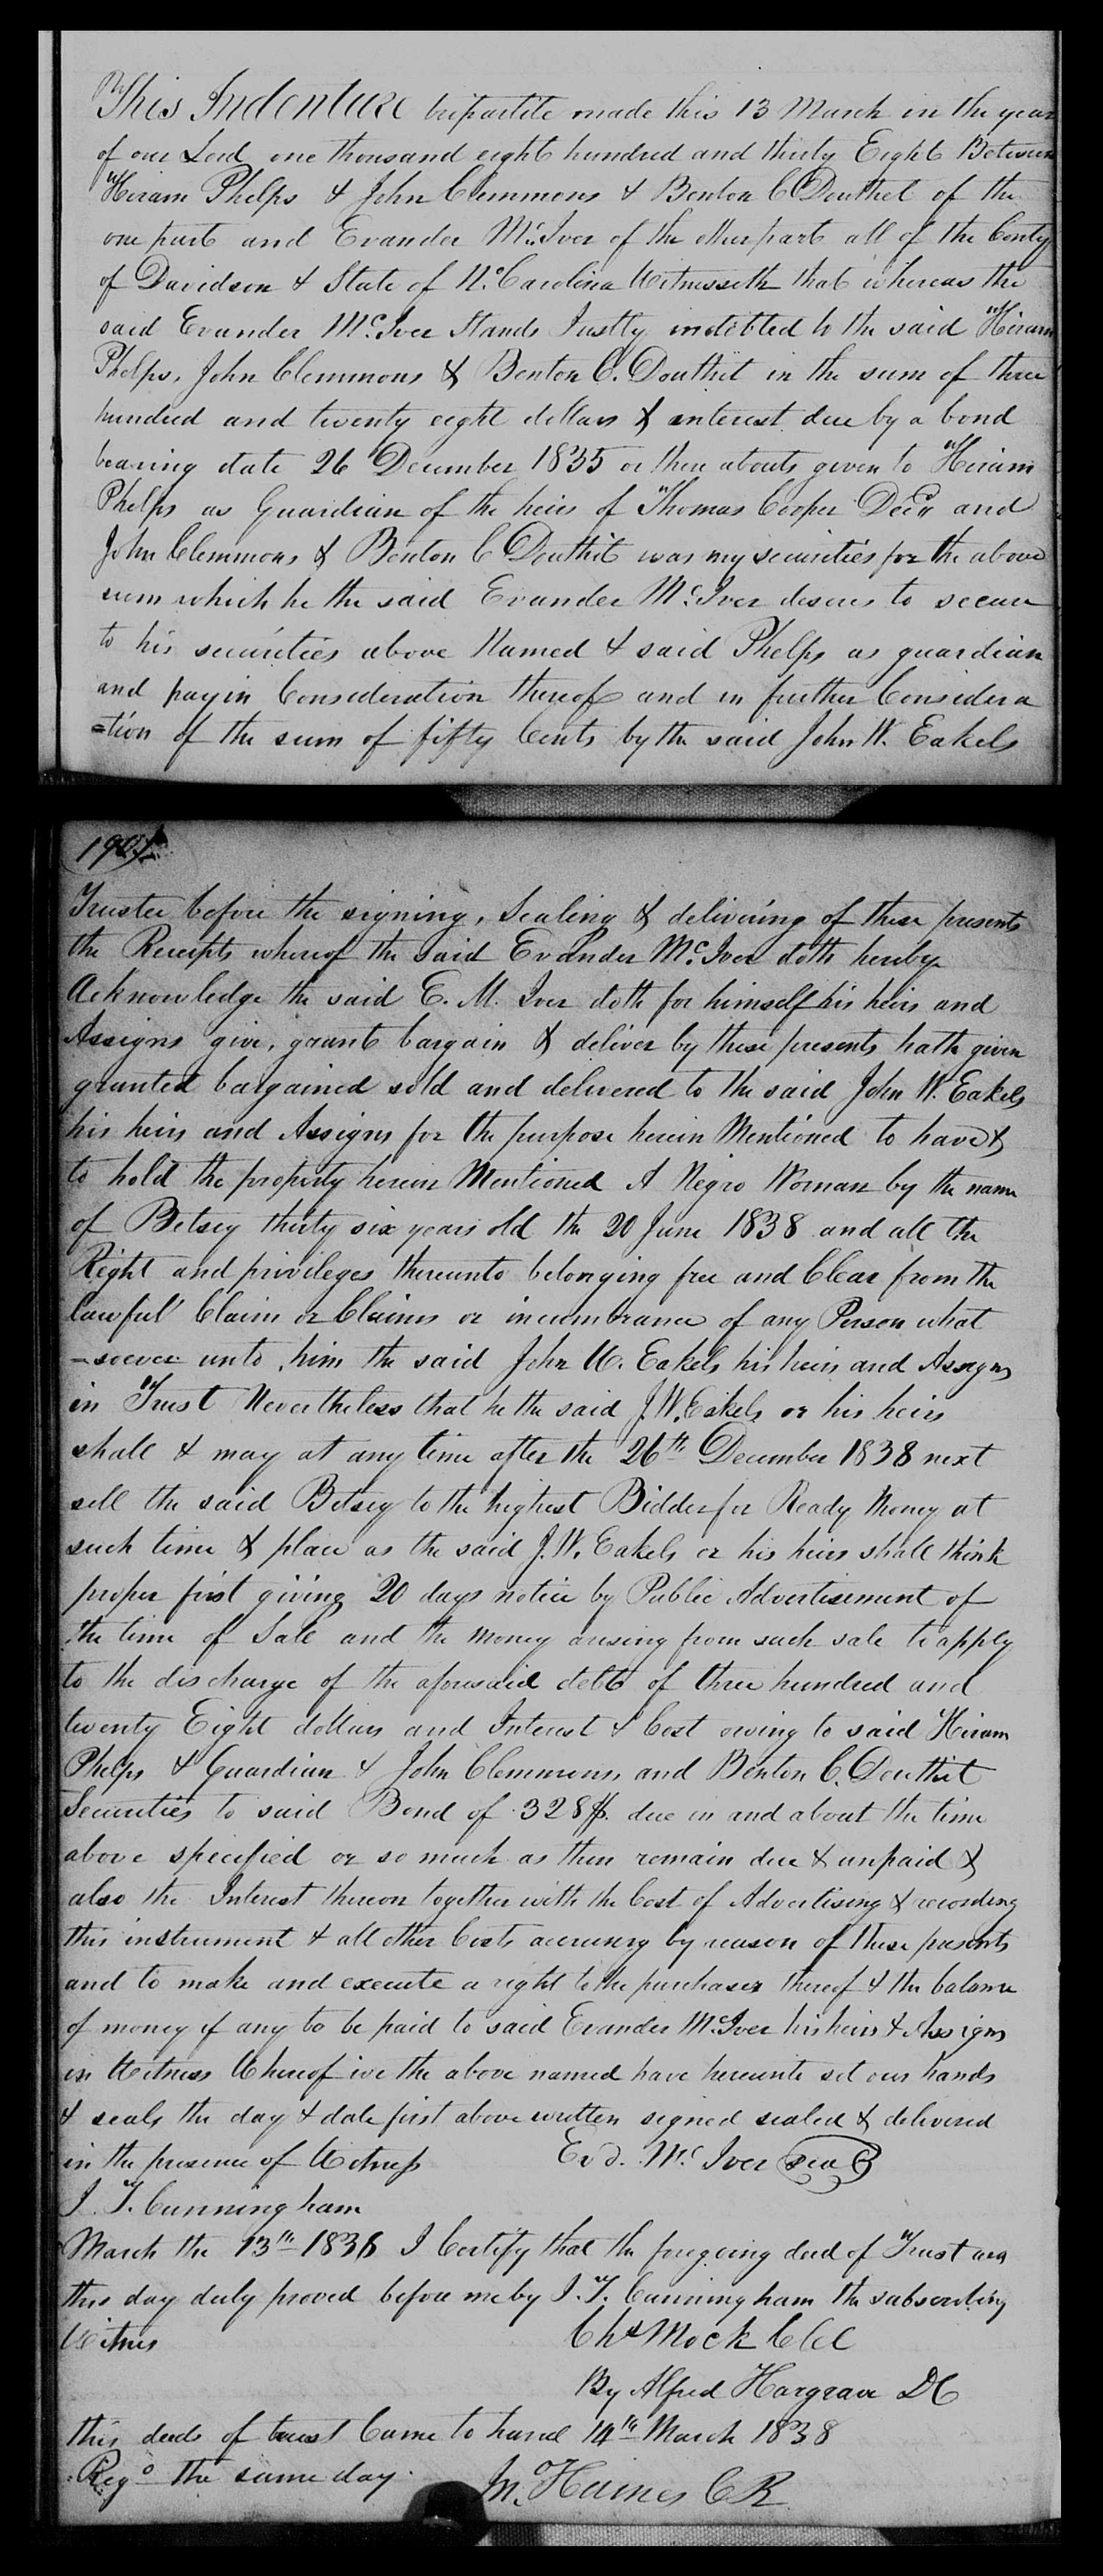 This Indenture tripartite made this 13 March in the year
of our Lord one thousand eight hundred and thirty Eight Between
Hiram Phelps & John Clemmons & Benton C Douthet of the
one part and Evander McIver of the other part all of the Conty
of Davidson & State of No. Carolina Witnesseth that whereas the
said Evander McIver Stands Justly indebted to the said Hiram
Phelps, John Clemmons & Benton C. Douthit in the sum of three
hundred and twenty eight dollars & interest due by a bond
bearing date 26 December 1835 or there abouts given to Hiram
Phelps as Guardian of the heirs of Thomas Cooper Decd and
John Clemmons & Benton C Douthit was my securities for the above
sum which he the said Evander McIver desires to secure
to his securities above Named & said Phelps as guardian
and pay in Consideration thereof and in further Considera
=tion of the sum of fifty Cents by the said John W. Eakels
Trustee before the signing, Sealing & delivering of these presents
the Receipts whereof the said Evander McIver doth hereby
Acknowledge the said E. M. Iver doth for himself his heirs and
Assigns give, grant bargain & deliver by these presents hath given
granted bargained sold and delivered to the said John W. Eakels
his heirs and Assigns for the purpose herein Mentioned to have &
to hold the property herein Mentioned A Negro Woman by the name
of Betsey thirty six years old the 20 June 1838 and all the
Right and privileges thereunto belonging free and Clear from the
lawful Claim or Claims or incumbrance of any Person what
=soever unto him the said John W. Eakels his heirs and Assigns
in Trust Nevertheless that he the said J.W. Eakels or his heirs
shall & may at any time after the 26th December 1838 next
sell the said Betsey to the highest Bidder for Ready Money at
such time & place as the said J.W. Eakels or his heirs shall think
proper first giving 20 days notice by Public Advertisement of
the time of Sale and the Money arising from such sale to apply
to the discharge of the aforesaid debt of three hundred and
twenty Eight dollars and Interest & Cost owing to said Hiram
Phelps & Guardian & John Clemmons and Benton C. Douthit
Securities to said Bond of 328$. due in and about the time
above specified or so much as then remain due & unpaid &
also the Interest thereon together with the Cost of Advertising & recording
this instrument & all other Costs accruing by reason of these presents
and to make and execute a right to the purchaser thereof & the balance
of money if any to be paid to said Evander McIver his heirs & Assigns
in Witness Whereof we the above named have hereunto set our hands
& seals the day & date first above written signed sealed & delivered
in the presence of Witness Evd. McIver seal
J. T. Cunningham
March the 13th 1838 I Certify that the foregoing deed of Trust was
this day duly proved before me by J. T. Cunningham the subscribing
Witness Chs Mock Clk
By Alfred Hargrave DC
this deeds of trust Came to hand 14th March 1838
Rego the same day. Jno Haines CR